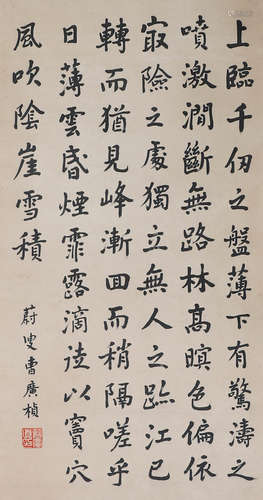 上臨千仞之盤薄下有驚濤之
噴激澗斷無路林高暝色偏依
㝡險之處獨立無人之跡江已
轉而猶見峰漸回而稍隔嗟乎
日薄雲昏煙霏露滴詎以竇穴
風吹陰崖雪積
蔚叟曹廣楨